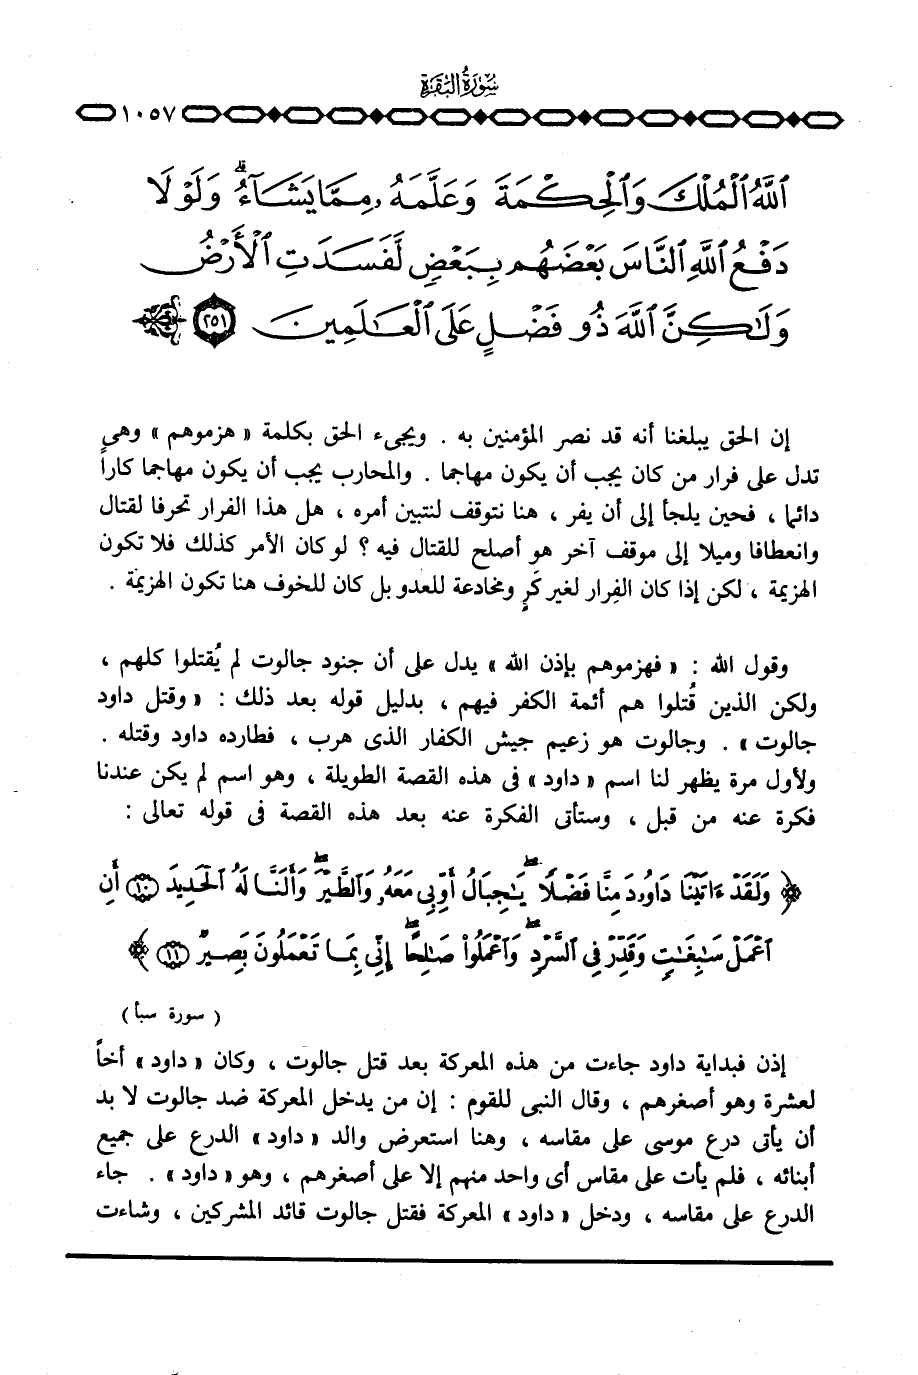 سُورَةُ البَقَرَةِ
١٠٥٧
ٱللَّهُ ٱلْمُلْكَ وَٱلْحِكْمَةَ وَعَلَّمَهُۥ مِمَّا يَشَآءُ ۗ وَلَوْلَا
دَفْعُ ٱللَّهِ ٱلنَّاسَ بَعْضَهُم بِبَعْضٍ لَّفَسَدَتِ ٱلْأَرْضُ
وَلَٰكِنَّ ٱللَّهَ ذُو فَضْلٍ عَلَى ٱلْعَٰلَمِينَ ٢٥١ ﴾
إن الحق يبلغنا أنه قد نصر المؤمنين به . ويجىء الحق بكلمة « هزموهم » وهى
تدل على فرار من كان يجب أن يكون مهاجما . والمحارب يجب أن يكون مهاجما كاراً
دائما ، فحين يلجأ إلى أن يفر ، هنا نتوقف لنتبين أمره ، هل هذا الفرار تحرفا لقتال
وانعطافا وميلا إلى موقف آخر هو أصلح للقتال فيه ؟ لو كان الأمر كذلك فلا تكون
الهزيمة ، لكن إذا كان الفِرار لغير كَرٍ ومخادعة للعدو بل كان للخوف هنا تكون الهزيمة .
وقول الله : « فهزموهم بإذن الله » يدل على أن جنود جالوت لم يُقتلوا كلهم ،
ولكن الذين قُتلوا هم أئمة الكفر فيهم ، بدليل قوله بعد ذلك : « وقتل داود
جالوت » . وجالوت هو زعيم جيش الكفار الذى هرب ، فطارده داود وقتله .
ولأول مرة يظهر لنا اسم « داود » فى هذه القصة الطويلة ، وهو اسم لم يكن عندنا
فكرة عنه من قبل ، وستأتى الفكرة عنه بعد هذه القصة فى قوله تعالى :
﴿ وَلَقَدْ ءَاتَيْنَا دَاوُۥدَ مِنَّا فَضْلًا ۖ يَٰجِبَالُ أَوِّبِى مَعَهُۥ وَٱلطَّيْرَ ۖ وَأَلَنَّا لَهُ ٱلْحَدِيدَ ١٠ أَنِ
ٱعْمَلْ سَٰبِغَٰتٍ وَقَدِّرْ فِى ٱلسَّرْدِ ۖ وَٱعْمَلُوا۟ صَٰلِحًا ۖ إِنِّى بِمَا تَعْمَلُونَ بَصِيرٌ ١١ ﴾
( سورة سبأ )
إذن فبداية داود جاءت من هذه المعركة بعد قتل جالوت ، وكان « داود » أخاً
لعشرة وهو أصغرهم ، وقال النبى للقوم : إن من يدخل المعركة ضد جالوت لا بد
أن يأتى درع موسى على مقاسه ، وهنا استعرض والد « داود » الدرع على جميع
أبنائه ، فلم يأت على مقاس أى واحد منهم إلا على أصغرهم ، وهو « داود » . جاء
الدرع على مقاسه ، ودخل « داود » المعركة فقتل جالوت قائد المشركين ، وشاءت